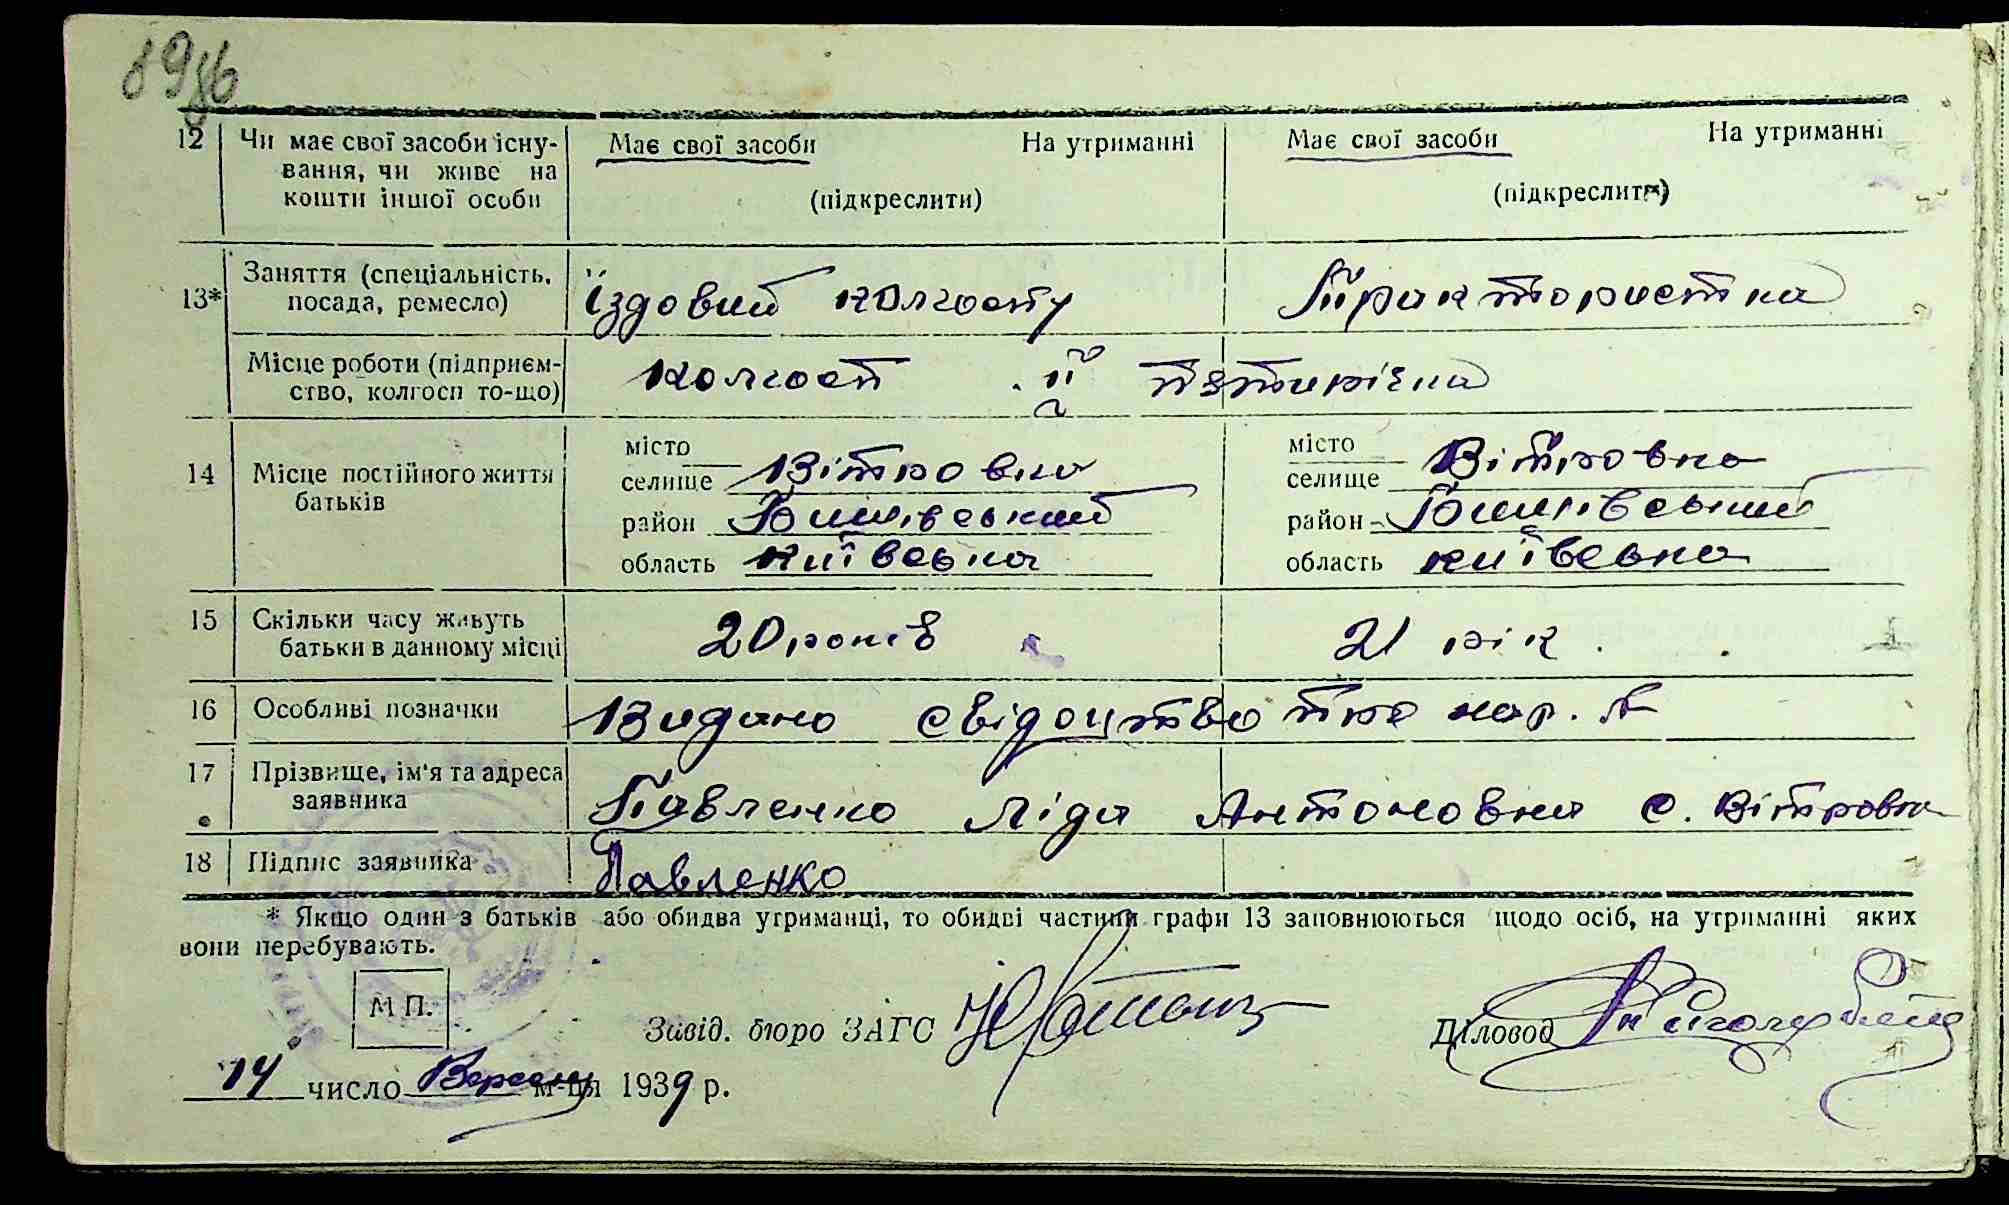 12 Чи має свої засоби існу- Має свої засоби На утриманні Має свої засоби На утриманні
вання, чи живе на
кошти іншої особи (підкреслити) (підкреслити)
13* Заняття (спеціальність, посада, ремесло) Їздовий колгоспу Трактористка
Місце роботи (підприєм-
ство, колгосп то-що) Колгосп "ІІ пятирічка
14 Місце постійного життя батьків
місто
селище Вітровка
район
область київська
місто
селище Вітровка
район
область київська
15 Скільки часу живуть
батьки в данному місці 20 років 21 рік.
16 Особливі позначки Видано свідоцтво про нар.
17 Прізвище, ім'я та адреса
заявника Павленко Ліда Антоновна с. Вітровка
18 Підпис заявника Павленко
* Якщо один з батьків або обидва утриманці, то обидві частини графи 13 заповнюються щодо осіб, на утриманні яких
вони перебувають.
М П.
Завід. бюро ЗАГС Діловод
14 число Вересня м-ця 1939 р.